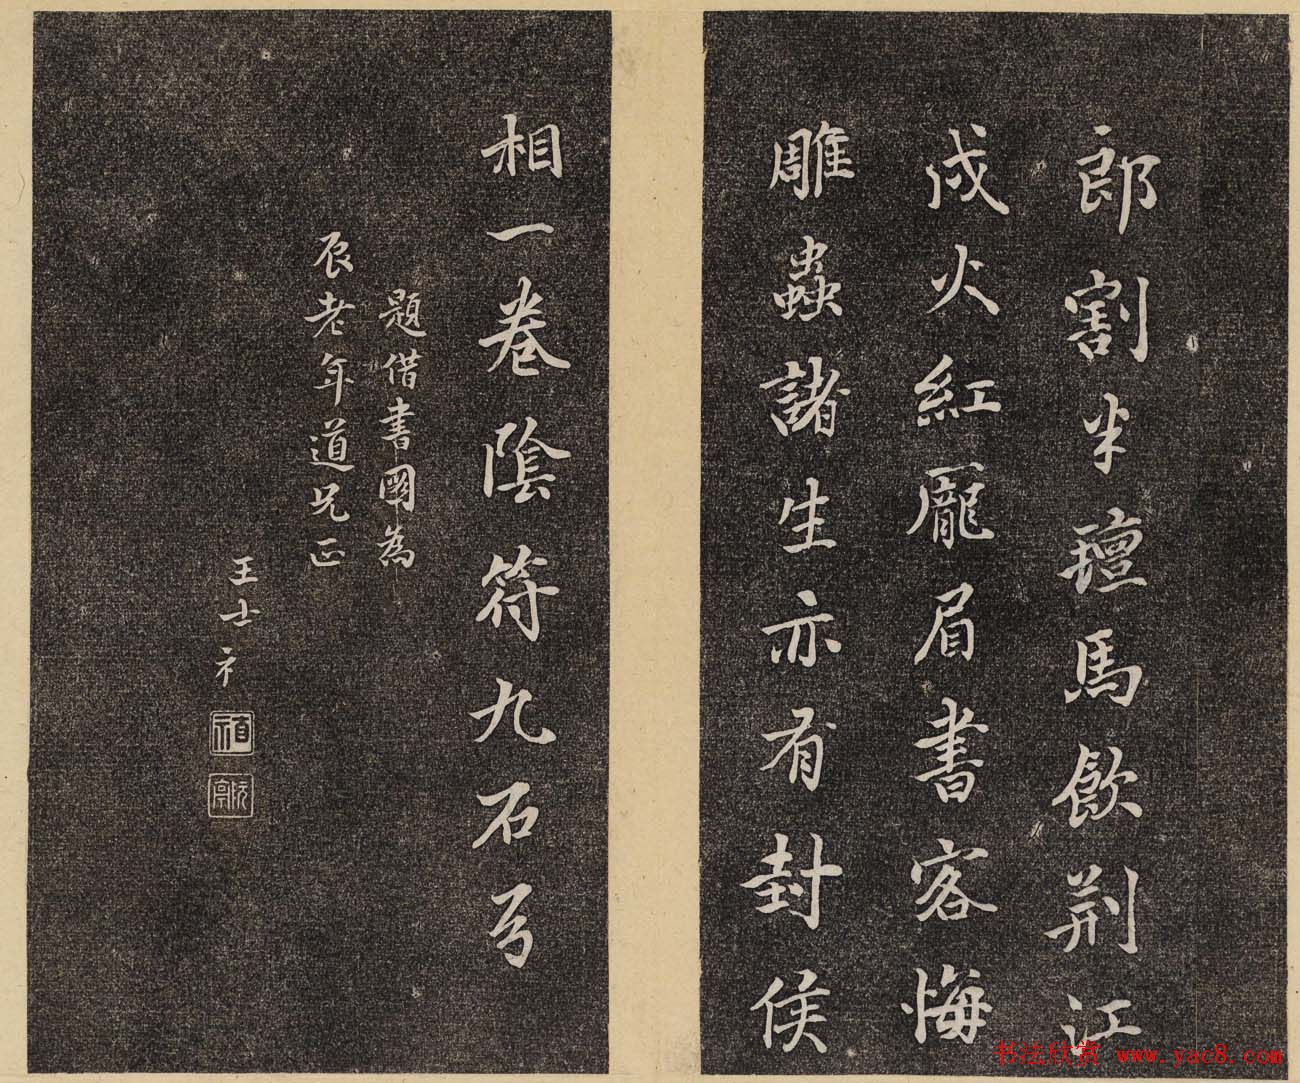 郎割半璮馬飲荆江
戍火紅龎眉書客悔
雕蟲諸生亦有封侯
相一卷陰符九石弓
題借書圖為
辰老年道兄正
王士礻
書法欣赏 www.yac8.com